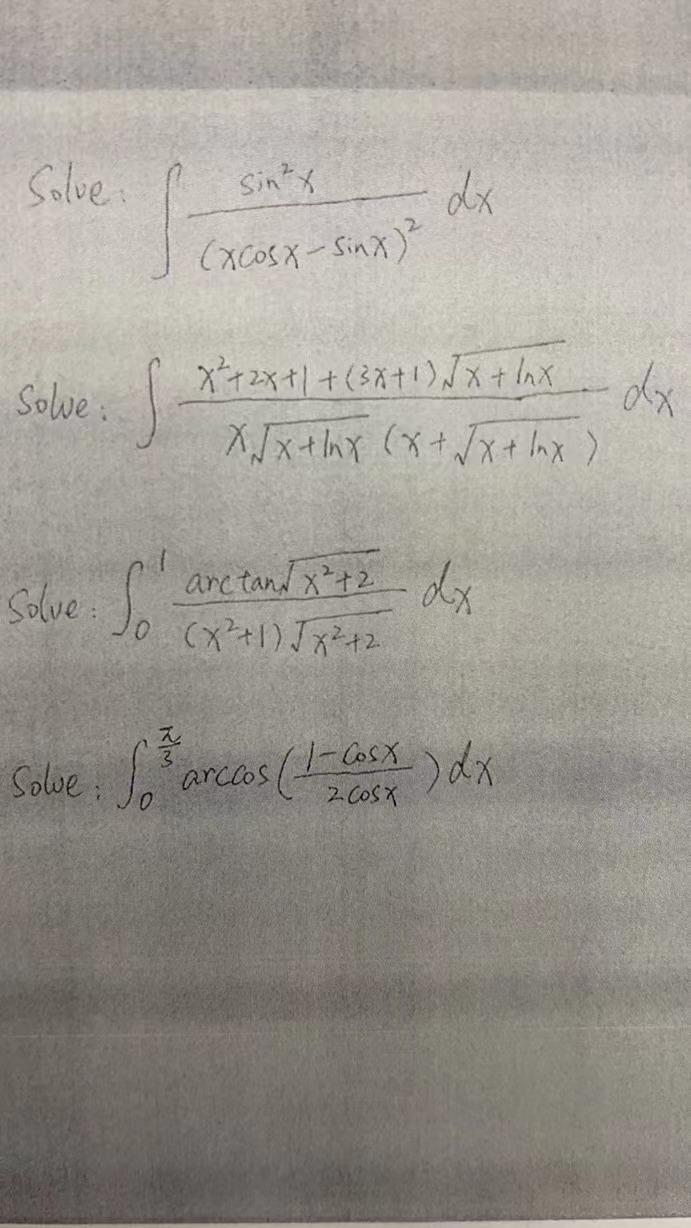 Solve: ∫ sin²x / (xcosx − sinx)² dx
Solve: ∫ x²+2x+1+(3x+1)√(x+lnx) / x√(x+lnx) (x+√(x+lnx)) dx
Solve: ∫₀¹ arctan√(x²+2) / (x²+1)√(x²+2) dx
Solve: ∫₀^(π/3) arccos((1−cosx)/(2cosx)) dx